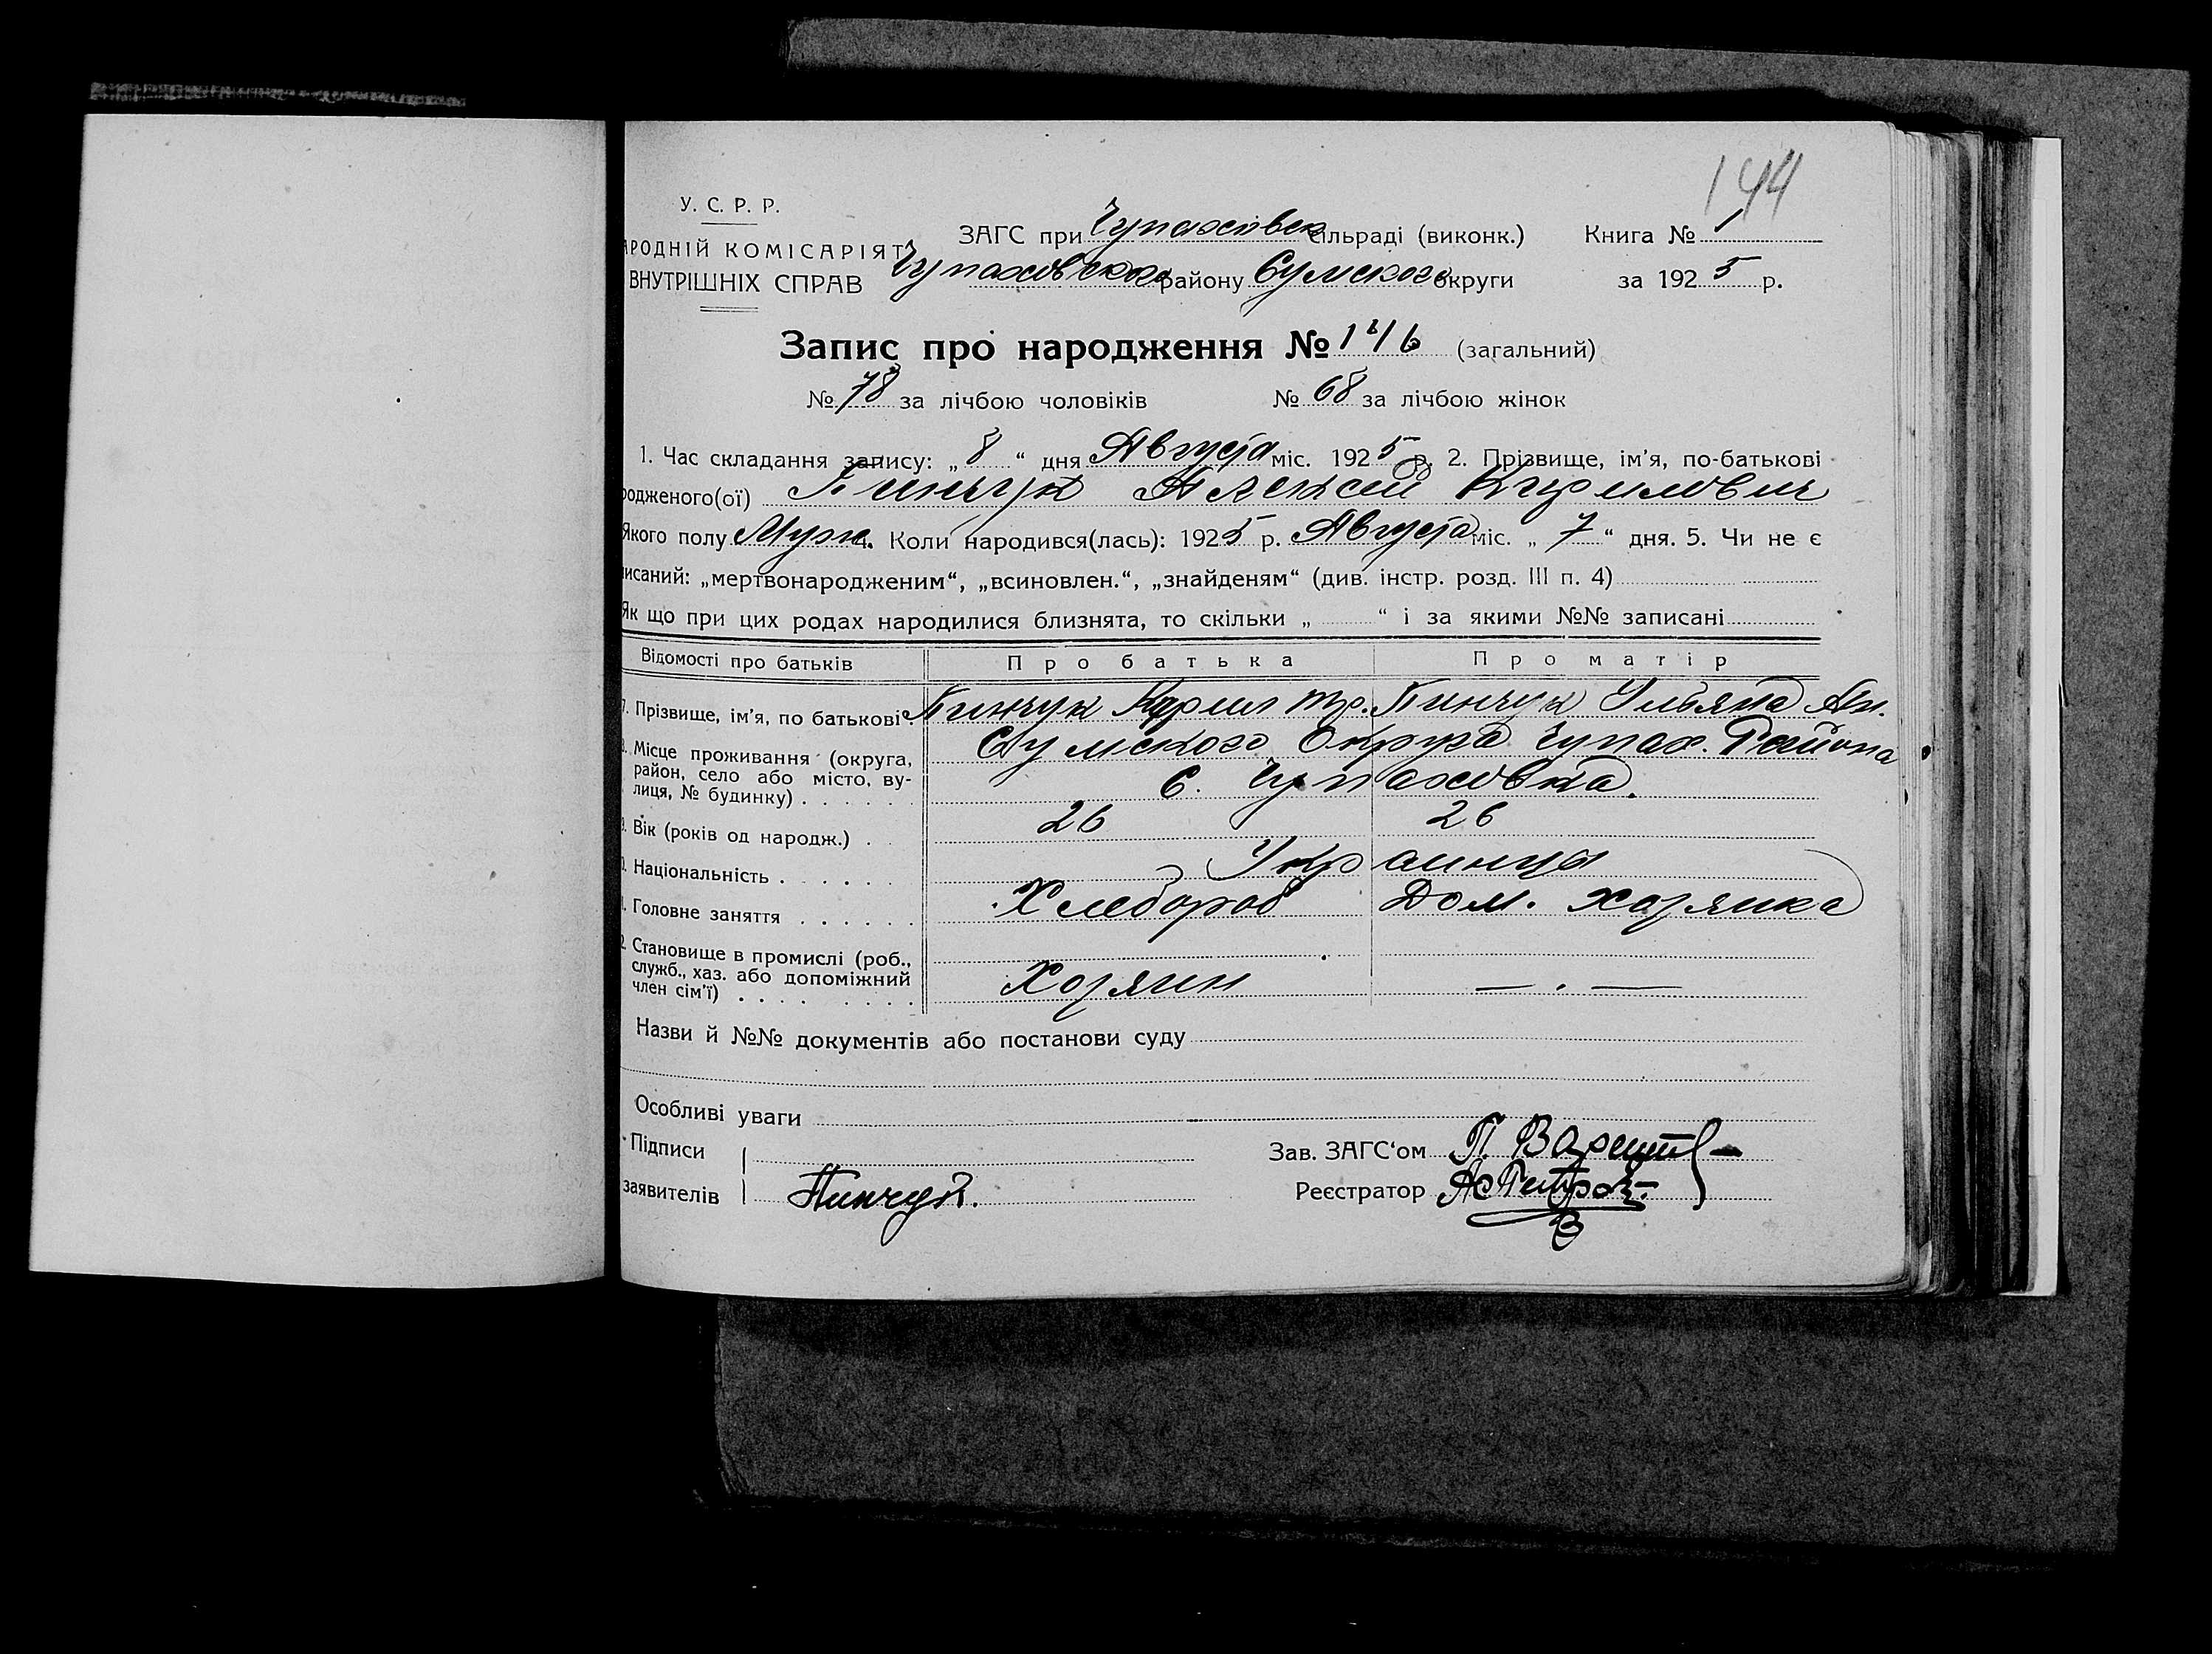 144
У. С. Р. Р.
АРОДНІЙ КОМІСАРІЯТ ЗАГС при Чупаховск сільраді (виконк.) Книга № 1
ВНУТРІШНІХ СПРАВ Чупаховского району Сумского округи за 1925 р.
Запис про народження № 146 (загальний)
№ 78 за лічбою чоловіків № 68 за лічбою жінок
1. Час складання запису: „ 8 “ дня Августа міс. 1925 р. 2. Прізвище, ім’я, по-батькові
родженого(ої) Пинчук Алексей Кирилович
Якого полу Муж. 4. Коли народився(лась): 1925 р. Августа міс. „ 7 “ дня. 5. Чи не є
писаний: „мертвонародженим“, „всиновлен.“, „знайденям“ (див. інстр. розд. III п. 4)
Як що при цих родах народилися близнята, то скільки „ “ і за якими №№ записані
Відомості про батьків Про батька Про матір
7. Прізвище, ім’я, по батькові Пинчук Кирил Тр. Пинчук Ульяна Ан.
8. Місце проживання (округа, Сумского Округа Чупах. Района
район, село або місто, ву-
лиця, № будинку) С. Чупаховка.
9. Вік (років од народж.) 26 26
Національність Украинцы
Головне заняття Хлебороб Дом. хозяйка
2. Становище в промислі (роб.,
служб., хаз. або допоміжний
член сім’ї) Хозяин — . —
Назви й №№ документів або постанови суду
Особливі уваги
Підписи Зав. ЗАГС‘ом П.
заявителів Пинчук. Реєстратор